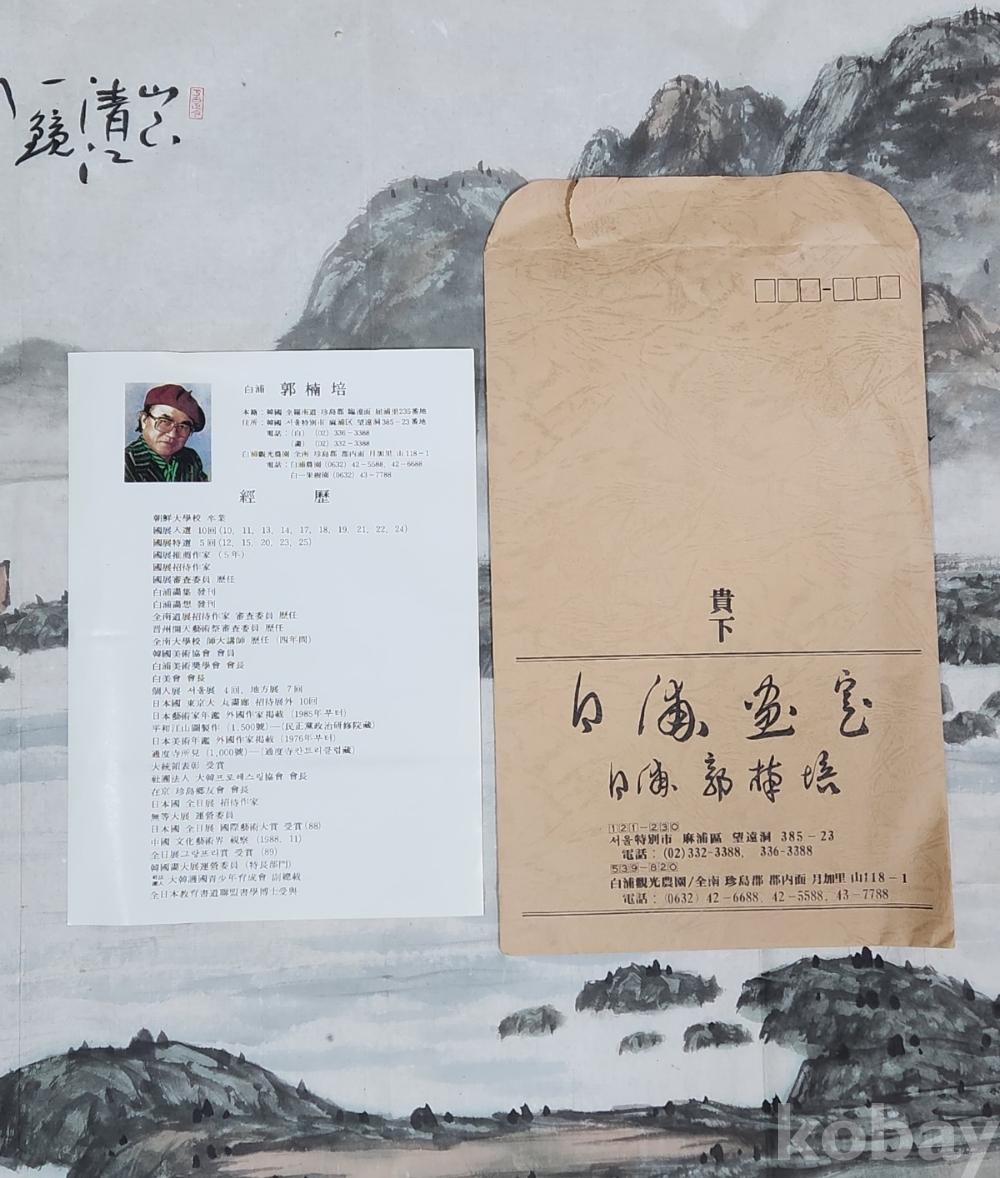 山
清江
一鏡
白浦 郭楠培
本籍 : 韓國 全羅南道 珍島郡 臨淮面 屈浦里235番地
住所 : 韓國 서울特別市 麻浦区 望遠洞 385-23番地
電話 : (自) (02) 336-3388
(畵) (02) 332-3388
白浦観光農園 / 全南 珍島郡 郡內面 月加里 山118-1
電話 : 白浦農園 (0632) 42-5588, 42-6688
白一果樹園 (0632) 43-7788
經 歷
朝鮮大學校 卒業
國展入選 10回(10, 11, 13, 14, 17, 18, 19, 21, 22, 24)
國展特選 5回(12, 15, 20, 23, 25)
國展推薦作家 (5年)
國展招待作家
國展審査委員 歷任
白浦畵集 發刊
白浦畵想 發刊
全南道展招待作家 審査委員 歷任
晋州開天藝術祭審査委員 歷任
全南大學校 師大講師 歷任 (四年間)
韓國美術協會 會員
白浦美術奬學會 會長
白美會 會長
個人展 서울展 4回, 地方展 7回
日本國 東京大 丸畵廊 招待展外 10回
日本藝術家年鑑 外國作家掲載 (1985年부터)
平和江山圖製作 (1,500號)—(民正黨政治硏修院藏)
日本美術年鑑 外國作家掲載 (1976年부터)
通度寺所見 (1,000號)—(通度寺칸트리클럽藏)
大統領表彰 受賞
社團法人 大韓프로레스링協會 會長
在京 珍島鄕友會 會長
日本國 全日展 招待作家
無等大展 運營委員
日本國 全日展 國際藝術大賞 受賞(88)
中國 文化藝術界 視察 (1988. 11)
全日展그랑프리賞 受賞 (89)
韓國畵大展運營委員 (特長部門)
社団法人 大韓護國青少年育成會 副總裁
全日本教育書道聯盟書學博士受與
貴下
白浦画室
白浦 郭楠培
121-230
서울特別市 麻浦區 望遠洞 385-23
電話 : (02)332-3388, 336-3388
539-820
白浦観光農園/全南 珍島郡 郡內面 月加里 山118-1
電話 : (0632) 42-6688, 42-5588, 43-7788
kobay